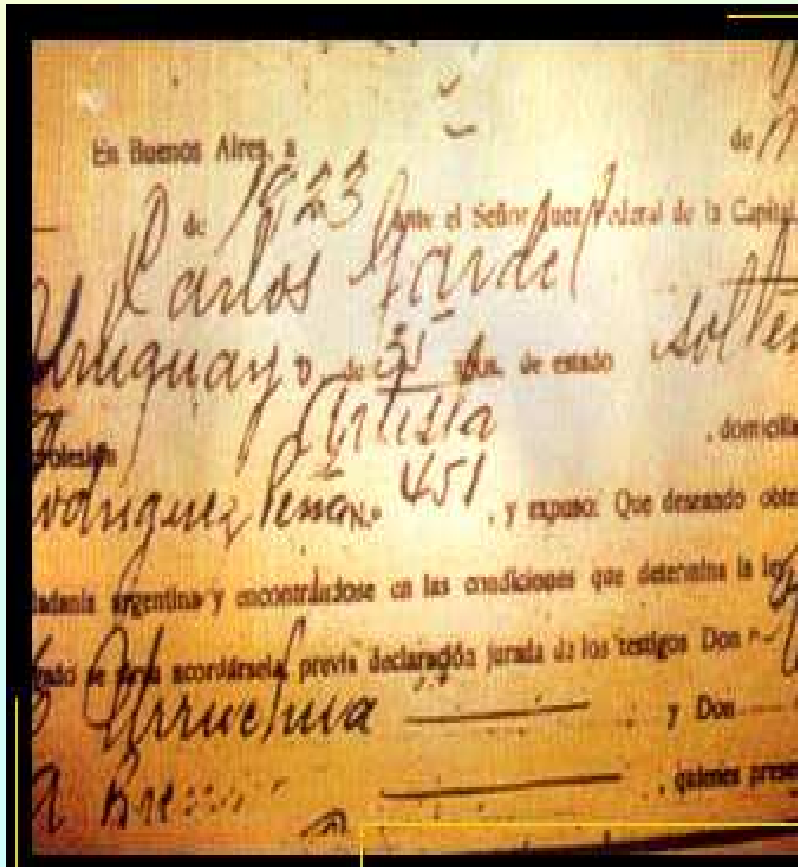 En Buenos Aires, a de
de 1923 ante el Señor Juez Federal de la Capital,
Carlos Gardel
Uruguay de años. de estado
profesión Artista , domicilia
Rodriguez Peña No. 451 , y expuso: Que deseando obte
dadanía argentina y encontrándose en las condiciones que determina la ley
gado se sirva acordársela, previa declaración jurada de los testigos Don
y Don
, quienes prese